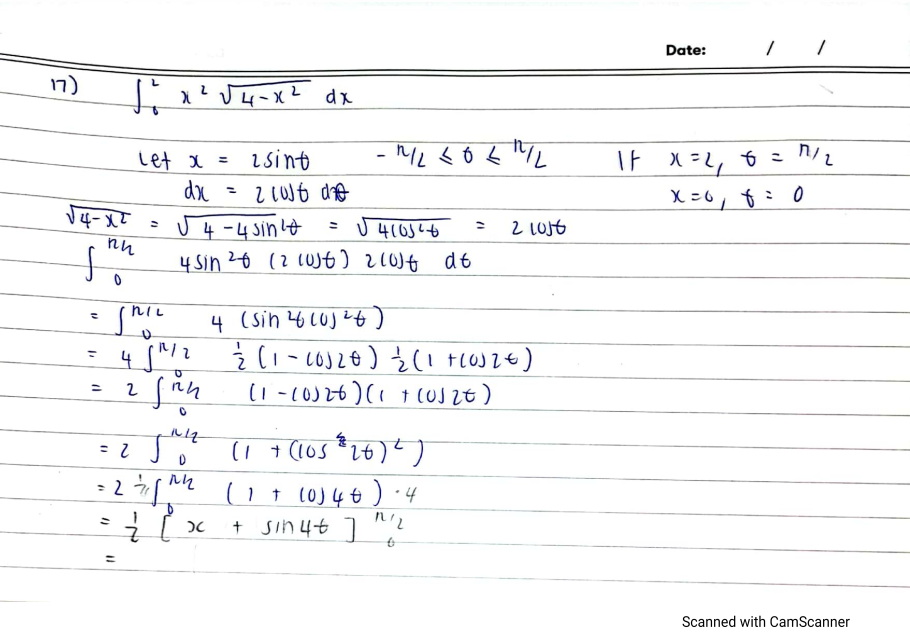 Date: / /
17) ∫₀² x² √(4-x²) dx
Let x = 2sinθ -π/2 ≤ θ ≤ π/2 If x=2, θ = π/2
dx = 2cosθ dθ x=0, θ = 0
√(4-x²) = √(4-4sin²θ) = √(4cos²θ) = 2cosθ
∫₀^(π/2) 4sin²θ (2cosθ) 2cosθ dθ
= ∫₀^(π/2) 4 (sin²θcos²θ)
= 4 ∫₀^(π/2) ½(1-cos2θ) ½(1+cos2θ)
= 2 ∫₀^(π/2) (1-cos2θ)(1+cos2θ)
= 2 ∫₀^(π/2) (1+(cos 2θ)²)
= 2 ∫₀^(π/2) (1 + cos4θ) · 4
= ½ [x + sin4θ]₀^(π/2)
=
Scanned with CamScanner